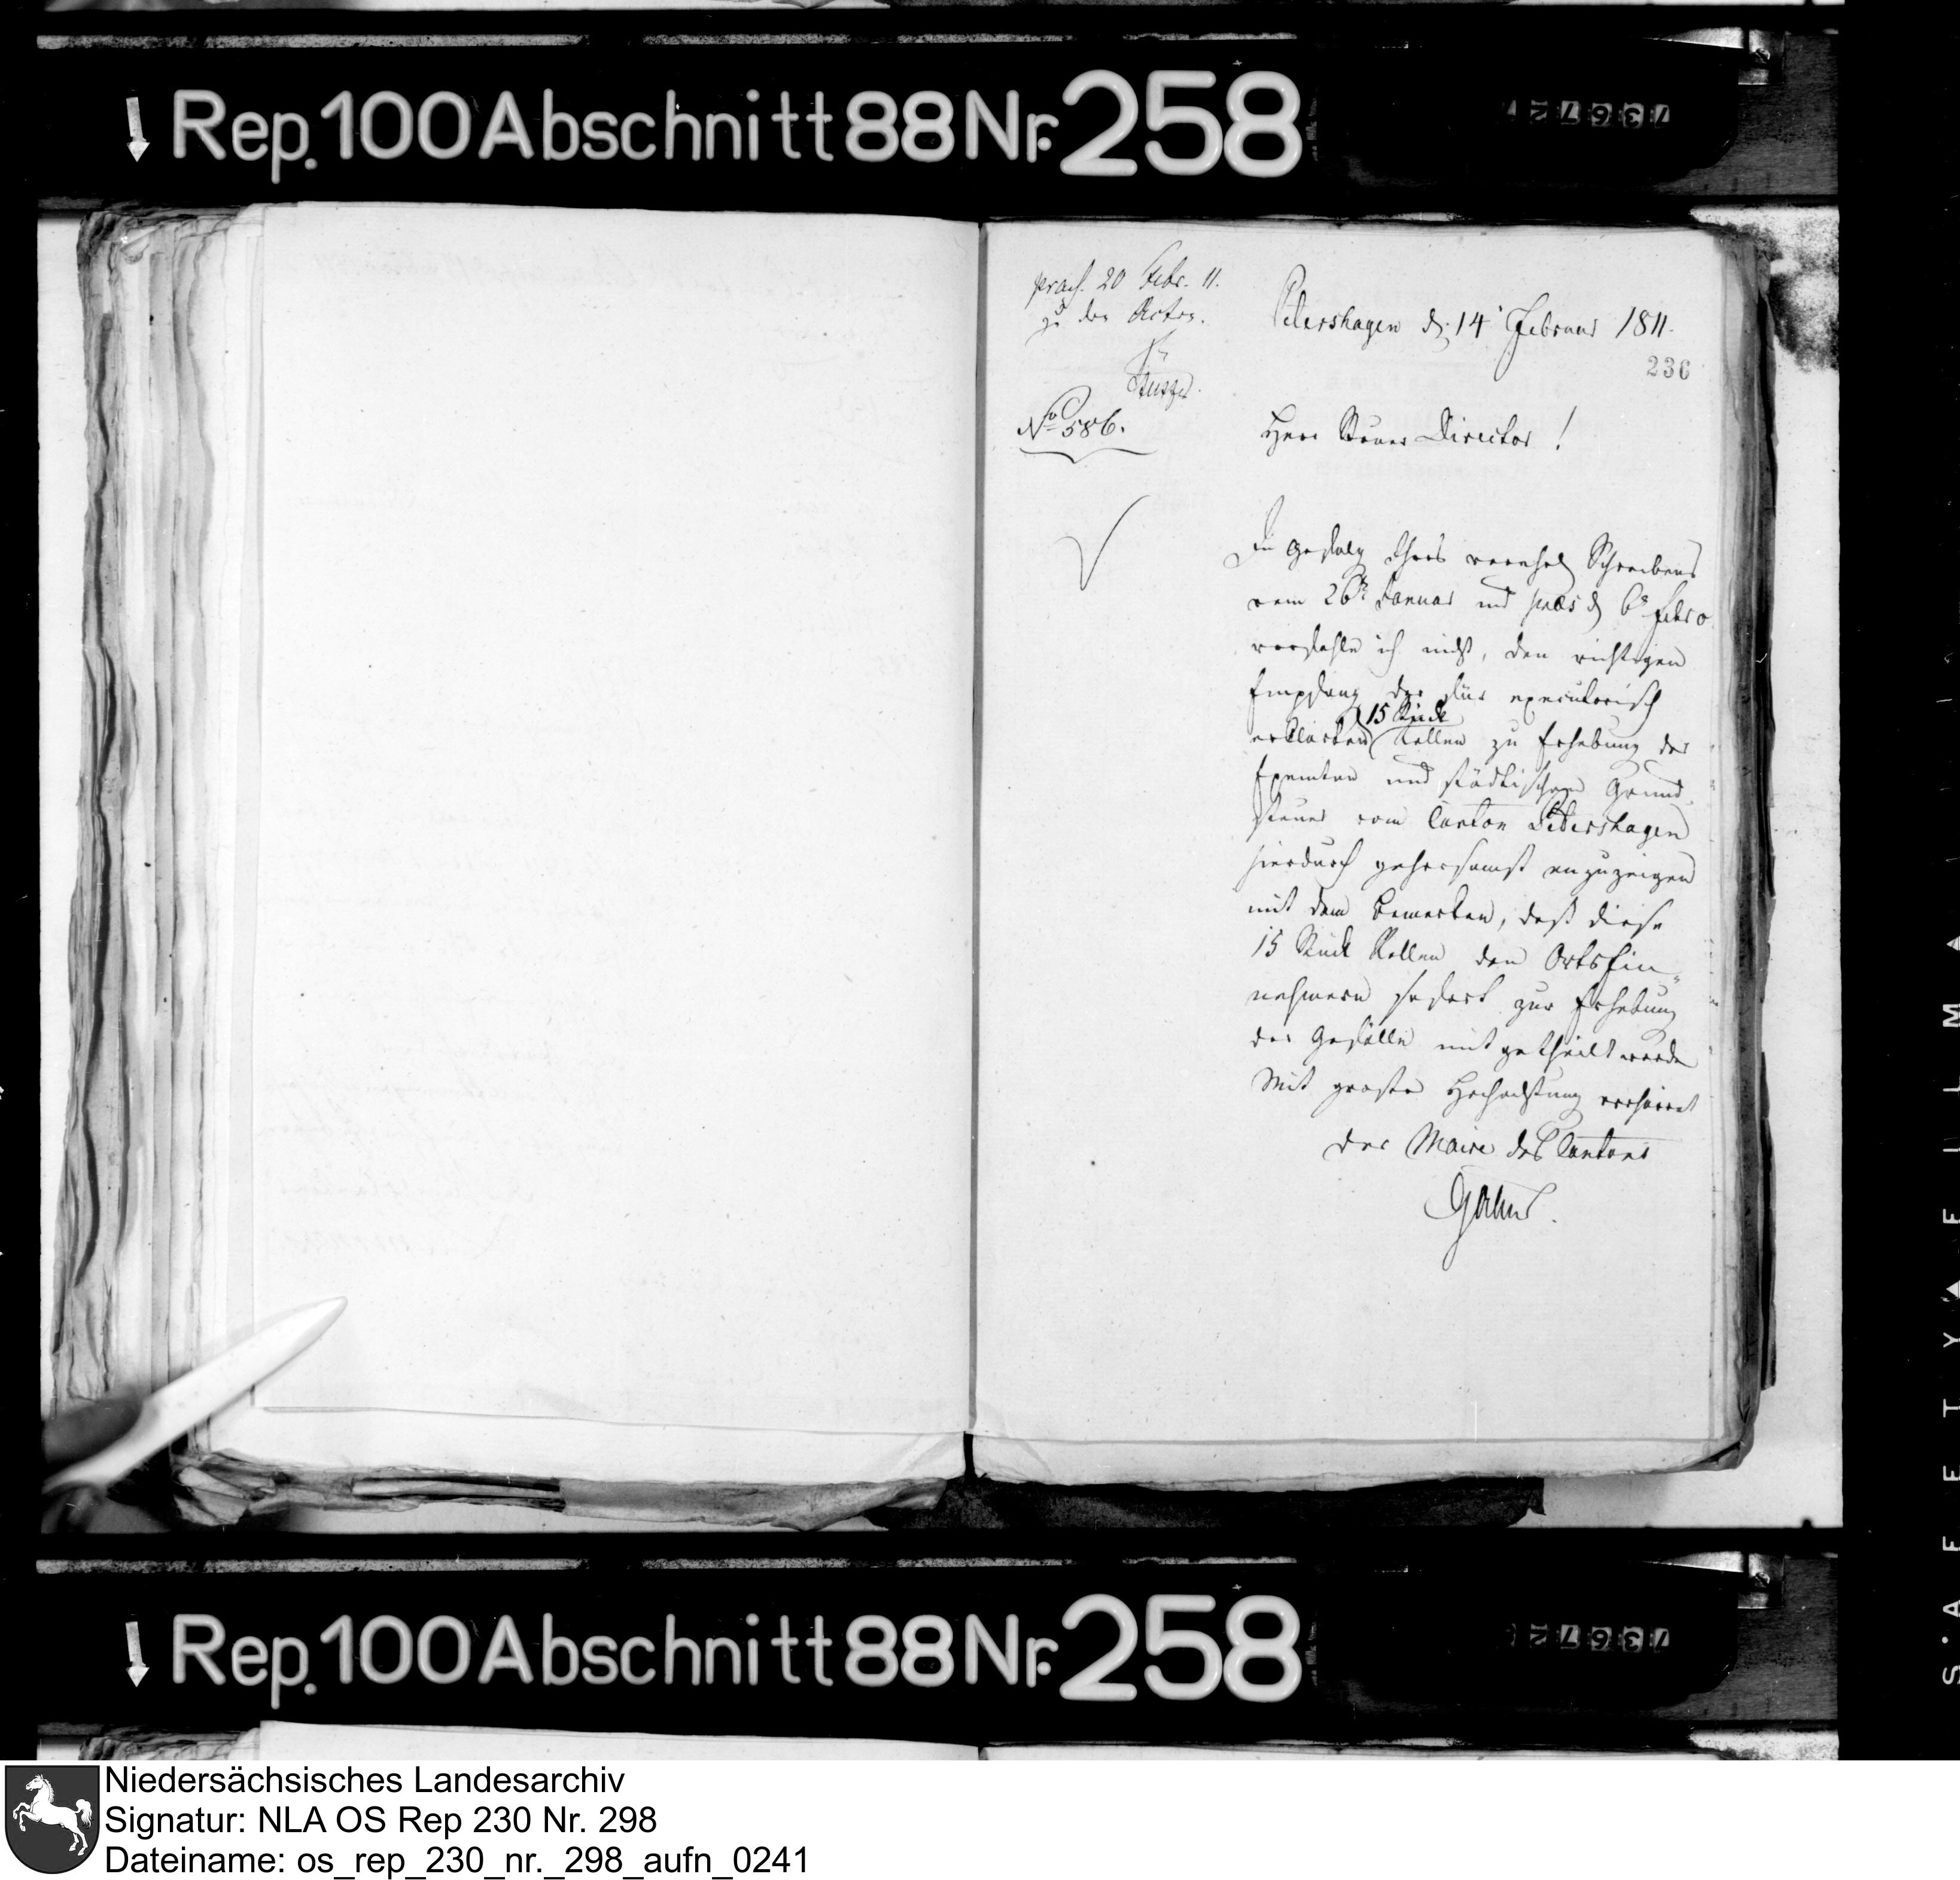 Rep. 100 Abschnitt 88 Nr. 258
praes. 20 Febr. 11.
zu den Acten.
No 586.
Petershagen d. 14 Februar 1811.
236
Herr Steuer Director!
In Gefolg Ihres verehrl Schreibens
vom 26t Januar und praes d 6t Febr
verfehle ich nicht, den richtigen
Empfang der für executorisch
15 Stück
erklärten Rollen zu Erhebung der
Exemten und städtischen Grund
steuer vom Canton Petershagen
hierdurch gehorsamst anzuzeigen
mit dem Bemerken, daß diese
15 Stück Rollen den Ortsein-
nehmern sofort zur Erhebung
der Gefälle mitgetheilt worden
Mit großer Hochachtung verharret
der Maire des Cantons
Rep. 100 Abschnitt 88 Nr. 258
SAFETY FILM
Niedersächsisches Landesarchiv
Signatur: NLA OS Rep 230 Nr. 298
Dateiname: os_rep_230_nr._298_aufn_0241